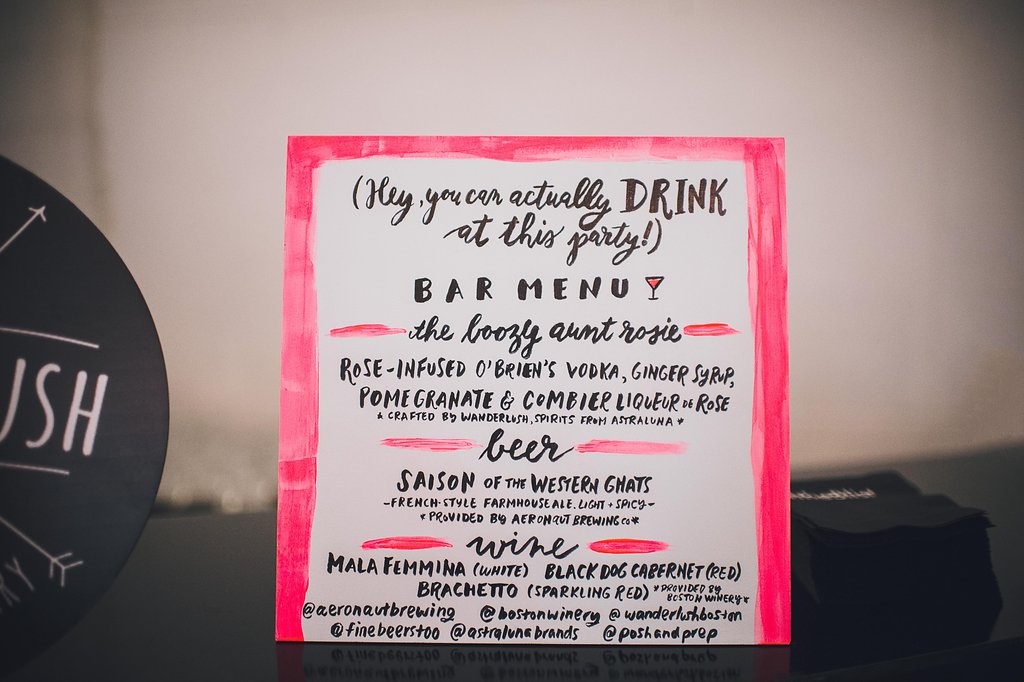 (Hey, you can actually DRINK
at this party!)
BAR MENU
the boozy aunt rosie
ROSE-INFUSED O'BRIEN'S VODKA, GINGER SYRUP,
POMEGRANATE & COMBIER LIQUEUR DE ROSE
* CRAFTED BY WANDERLUSH, SPIRITS FROM ASTRALUNA *
beer
SAISON OF THE WESTERN GHATS
-FRENCH-STYLE FARMHOUSE ALE. LIGHT + SPICY-
* PROVIDED BY AERONAUT BREWING CO *
wine
MALA FEMMINA (WHITE) BLACK DOG CABERNET (RED)
BRACHETTO (SPARKLING RED) * PROVIDED BY
BOSTON WINERY *
@aeronautbrewing @bostonwinery @wanderlushboston
@finebeerstoo @astralunabrands @poshandprep
USH
RY